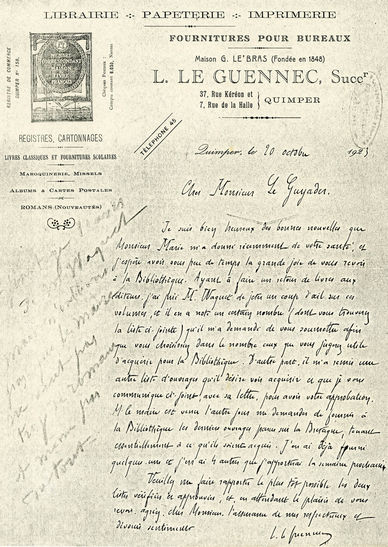 LIBRAIRIE - PAPETERIE - IMPRIMERIE
FOURNITURES POUR BUREAUX
Maison G. LE'BRAS (Fondée en 1848)
L. LE GUENNEC, Succr
37, Rue Kéréon et
7, Rue de la Halle
QUIMPER
REGISTRE DE COMMERCE
QUIMPER Nº 158.
TÉLÉPHONE 45
REGISTRES, CARTONNAGES
LIVRES CLASSIQUES ET FOURNITURES SCOLAIRES
MAROQUINERIE, MISSELS
ALBUMS & CARTES POSTALES
ROMANS (NOUVEAUTÉS)
Quimper, le 20 octobre 1923
Cher Monsieur Le Guyader,
Je suis bien heureux des bonnes nouvelles que
Monsieur Marie m'a donné récemment de votre santé, et
j'espère avoir sous peu de temps la grande joie de vous revoir
à la Bibliothèque. Ayant à faire un retour de livres aux
éditeurs j'ai prié M. Waquet de jeter un coup d'œil sur ces
volumes, et il en a noté un certain nombre (dont vous trouverez
la liste ci-jointe) qu'il m'a demandé de vous soumettre afin
que vous choisissiez dans le nombre ceux que vous jugerez utile
d'acquérir pour la Bibliothèque. D'autre part, il m'a remis une
autre liste d'ouvrages qu'il désire voir acquérir et que je vous
communique ci-joint avec sa lettre, pour avoir votre approbation.
M. le maire est venu l'autre jour me demander de fournir à
la Bibliothèque les derniers ouvrages parus sur la Bretagne, tenant
essentiellement à ce qu'ils soient acquis. J'en ai déjà fourni
quelques uns et j'en ai 4 autres que j'apporterai la semaine prochaine.
Veuillez me faire rapporter le plus tôt possible les deux
listes vérifiées & approuvées, et en attendant le plaisir de vous
revoir, agréez, cher Monsieur, l'assurance de mes respectueux et
dévoués sentiments
L. Le Guennec